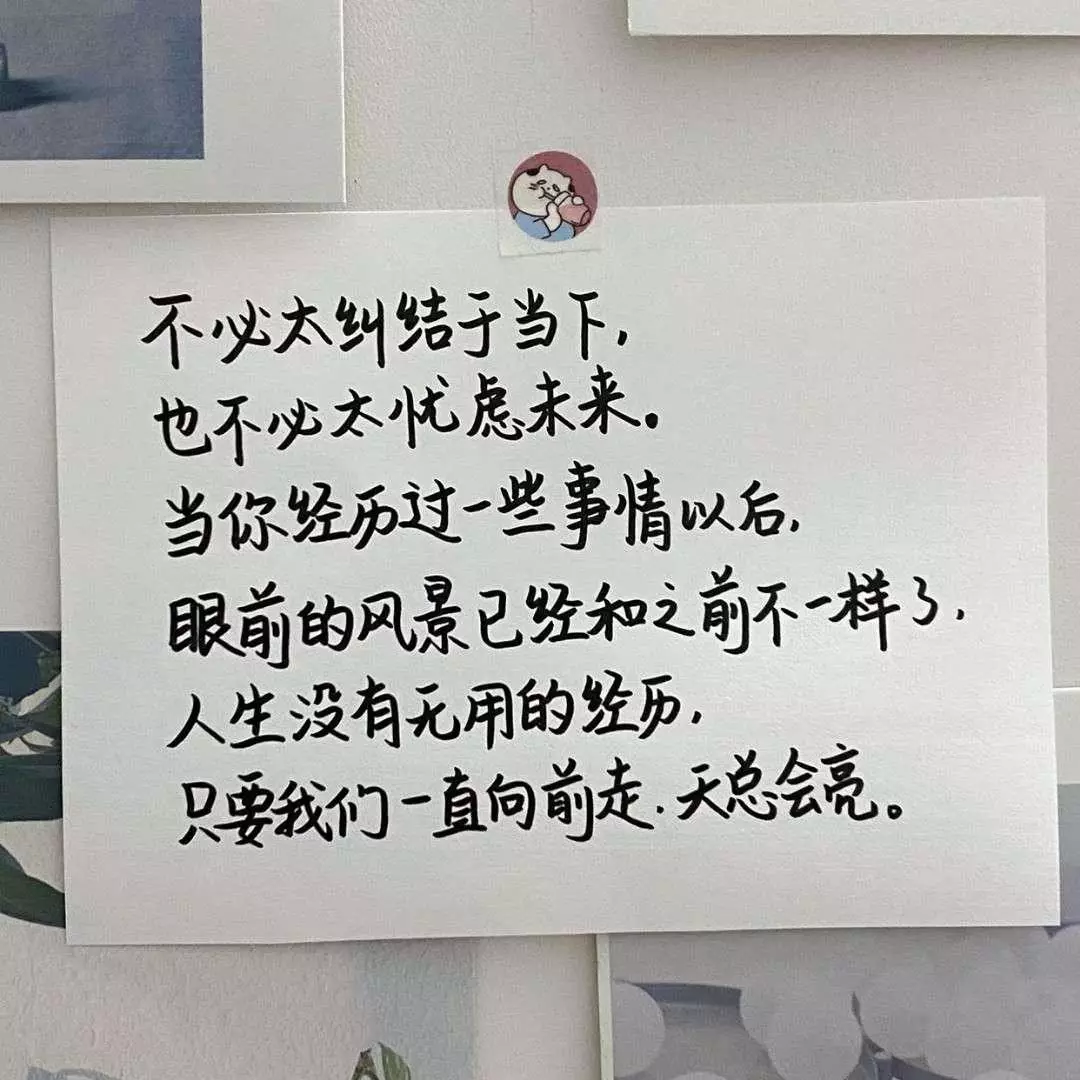 不必太纠结于当下，
也不必太忧虑未来。
当你经历过一些事情以后，
眼前的风景已经和之前不一样了，
人生没有无用的经历，
只要我们一直向前走，天总会亮。